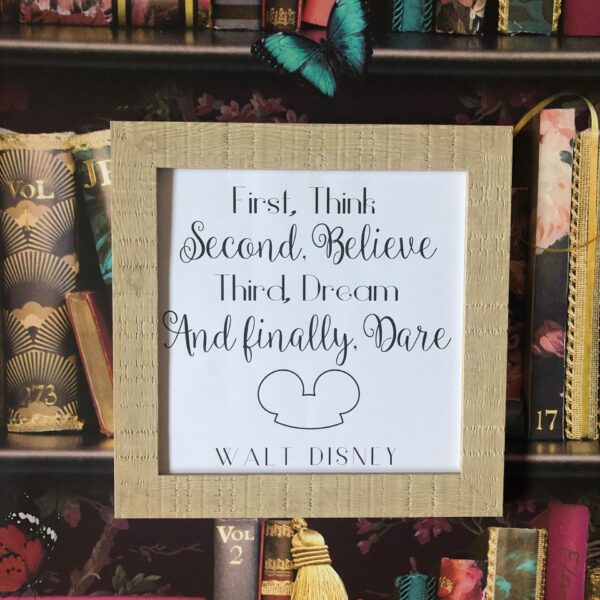 VOL
JE
273
First, Think
Second, Believe
Third, Dream
And finally, Dare
WALT DISNEY
17
VOL
2